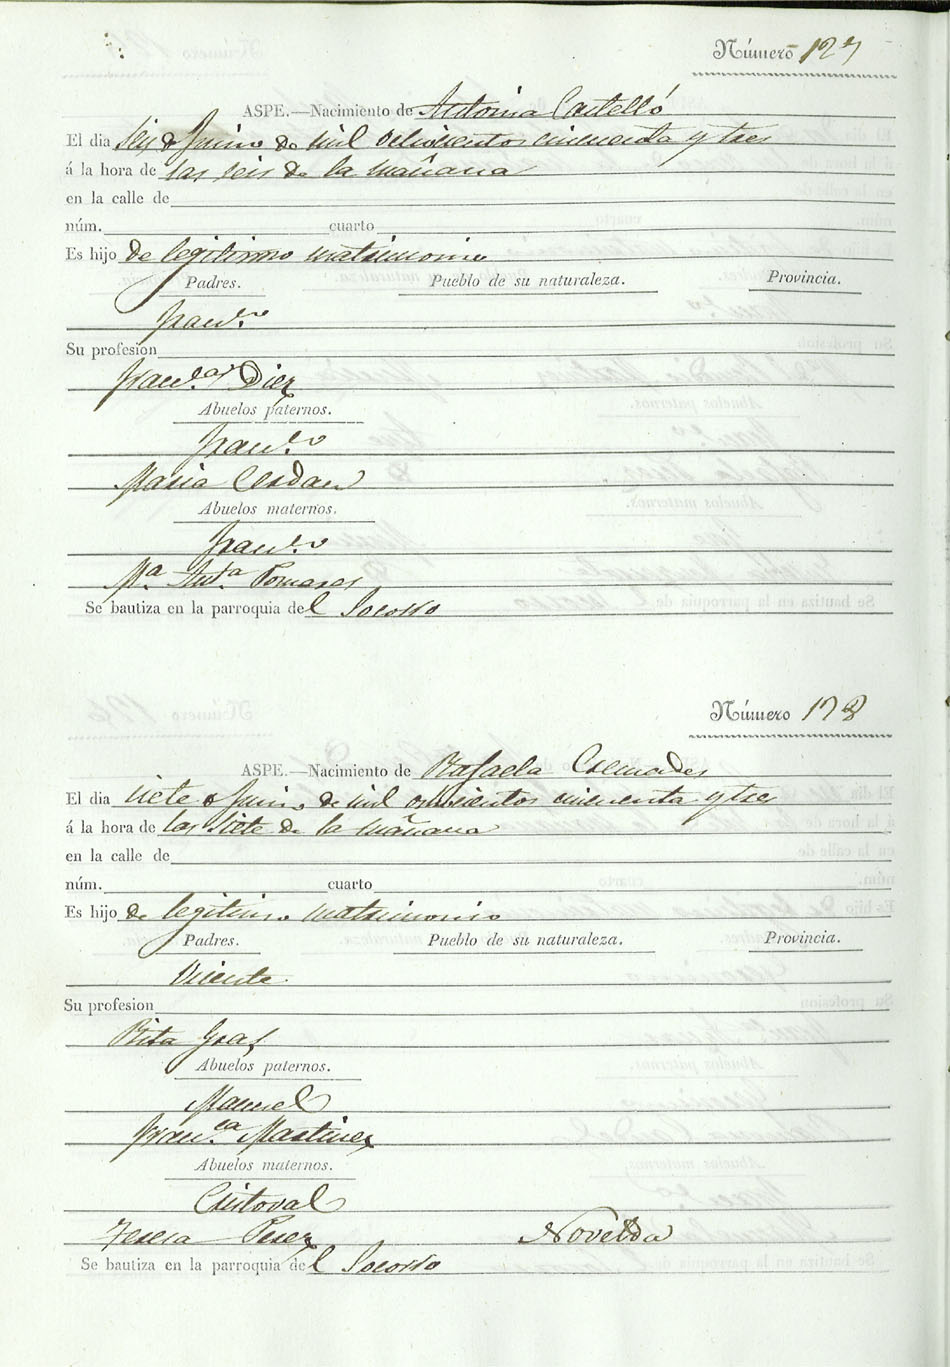 Número 127
ASPE.—Nacimiento de Antonia Castelló
El dia seis de Junio de mil ochocientos cincuenta y tres
á la hora de las seis de la mañana
en la calle de
núm. cuarto
Es hijo de legitimo matrimonio
Padres. Pueblo de su naturaleza. Provincia.
Franco
Su profesion
Franca Diez
Abuelos paternos.
Franco
Maria Cerdan
Abuelos maternos.
Franco
Ma Anta Pomares
Se bautiza en la parroquia del Socorro
Número 128
ASPE.—Nacimiento de Rafaela Cremades
El dia siete de Junio de mil ochocientos cincuenta y tres
á la hora de las siete de la mañana
en la calle de
núm. cuarto
Es hijo de legitimo matrimonio
Padres. Pueblo de su naturaleza. Provincia.
Vicente
Su profesion
Rita Gras
Abuelos paternos.
Manuel
Franca Martinez
Abuelos maternos.
Cristoval
Teresa Perez Novelda
Se bautiza en la parroquia del Socorro